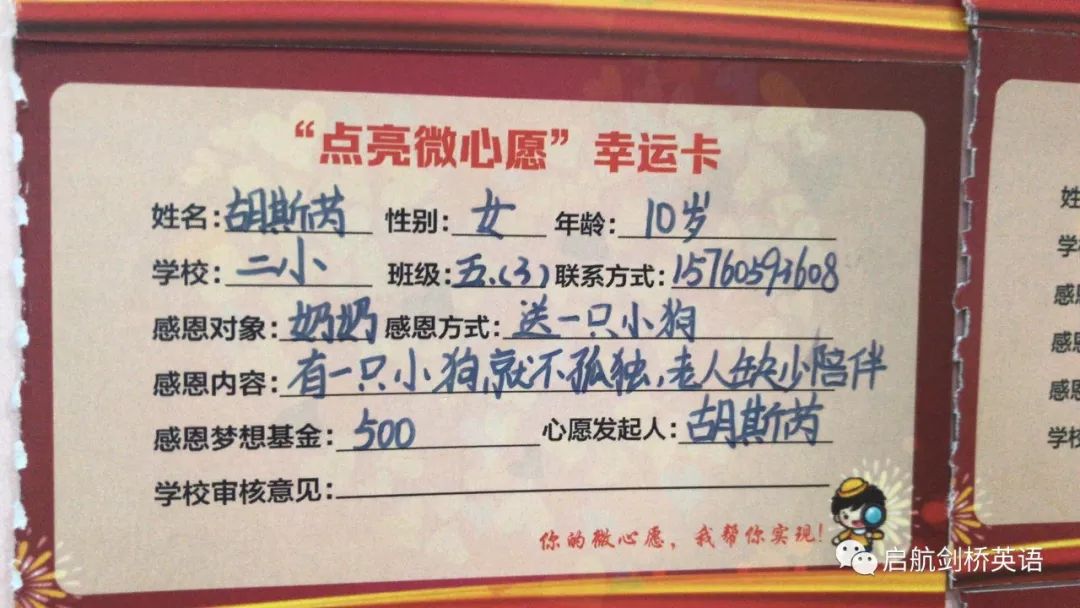 “点亮微心愿”幸运卡
姓名:胡斯芮 性别:女 年龄:10岁
学校:二小 班级:五.(3) 联系方式:15760593608
感恩对象:奶奶 感恩方式:送一只小狗
感恩内容:有一只小狗,就不孤独,老人缺少陪伴
感恩梦想基金:500 心愿发起人:胡斯芮
学校审核意见:
你的微心愿,我帮你实现!
姓
学
感
感
感
学校
启航剑桥英语